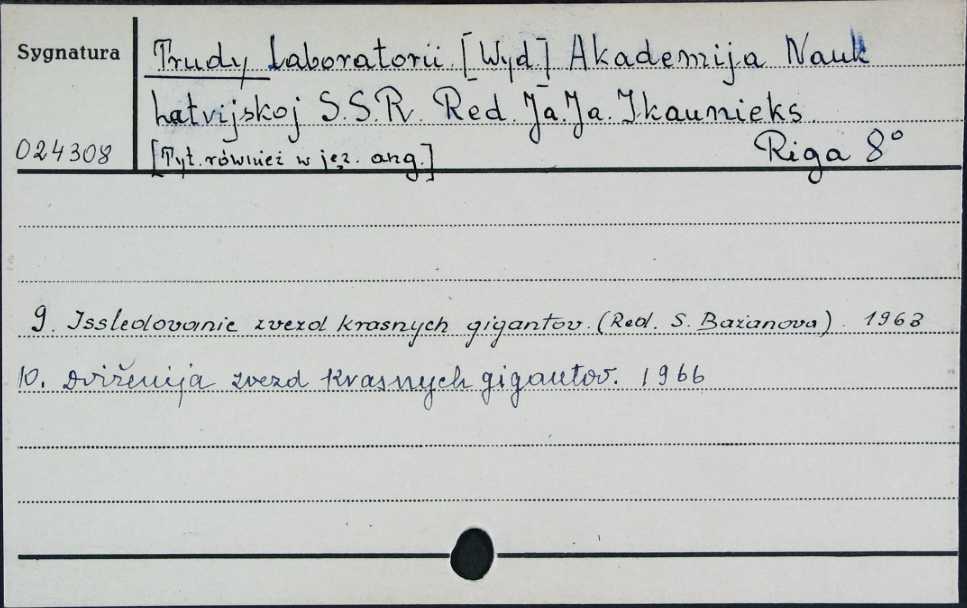 Sygnatura
024308
Trudy Laboratorii. [Wyd.] Akademija Nauk
Latvijskoj S.S.R. Red. Ja. Ja. Ikaunieks.
[Tyt. również w jęz. ang.]
Riga 8°
9. Issledovanie zvezd krasnych gigantov. (Red. S. Bažanova). 1963
10. Dviženija zvezd krasnych gigantov. 1966